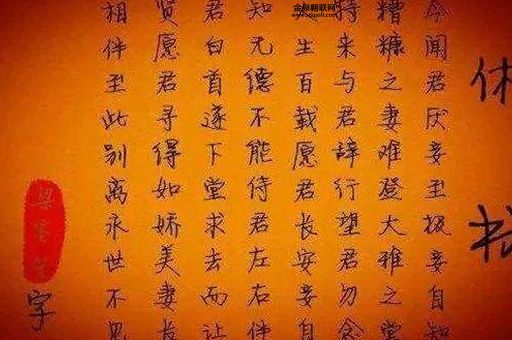 休
今闻君厌妾至极妾自知
糟糠之妻难登大雅之堂
特来与君辞行望君勿念
生百载愿君长安妾自
知无德不能侍君左右伴
君白首遂下堂求去而让
贤愿君寻得如娇美妻长
相伴至此别离永世不见
字